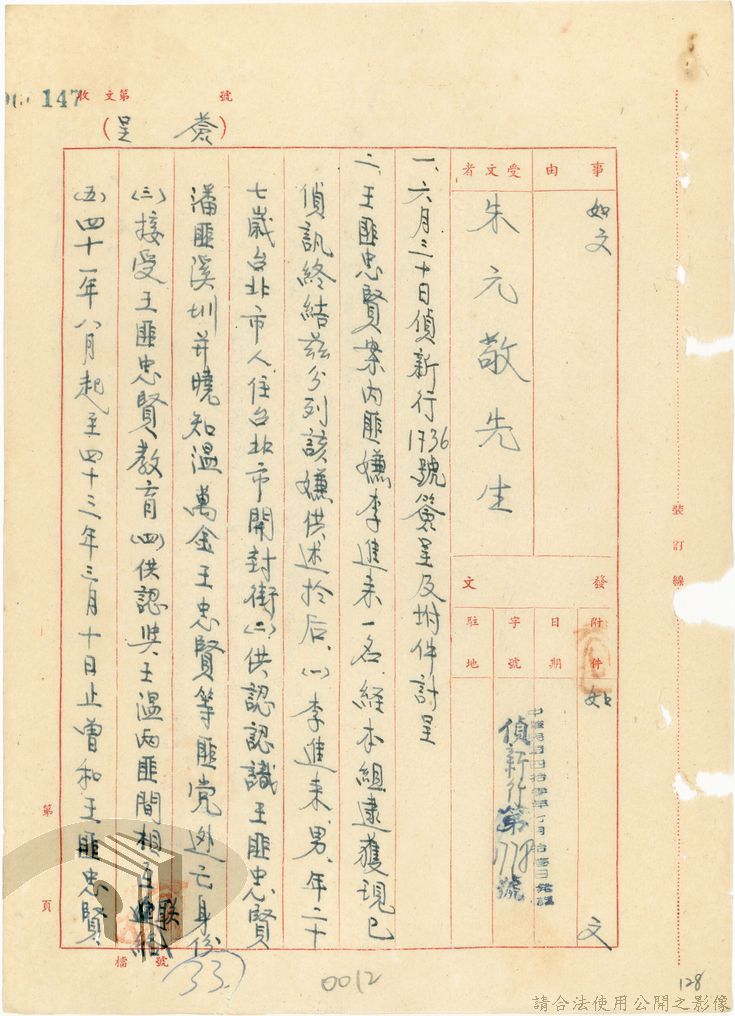 147
收文第 號
(簽 呈)
事由
如文
受文者
朱元敬先生
發文
附件
如
文
日期
字號
偵新行第 號
駐地
一、六月三十日偵新行1736號簽呈及附件計呈
二、王匪忠賢案內匪嫌李進來一名經本組逮獲現已
偵訊終結茲分列該嫌供述於后、㈠李進來、男、年二十
七歲台北市人住台北市開封街㈡供認認識王匪忠賢
潘匪溪圳并曉知溫萬金王忠賢等匪党逃亡身份
㈢接受王匪忠賢教育㈣供認與王溫兩匪間相互聯絡
㈤四十一年八月起至四十三年三月十日止曾和王匪忠賢
裝訂線
第 頁
檔 號
33
0012
128
請合法使用公開之影像